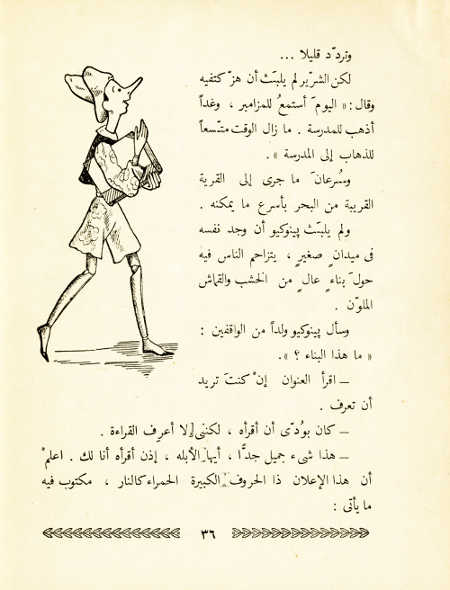 وتردّد قليلا ...
لكن الشرّير لم يلبث أن هزّ كتفيه
وقال : « اليومَ أستمعُ للمزامير ، وغداً
أذهب للمدرسة . ما زال الوقت متّسعاً
للذهاب إلى المدرسة » .
وسُرعانَ ما جرى إلى القرية
القريبة من البحر بأسرع ما يمكنه .
ولم يلبث پينوكيو أن وجد نفسه
فى ميدانٍ صغيرٍ ، يتزاحم الناس فيه
حولَ بناءٍ عالٍ من الخشب والقماش
الملوّن .
وسأل پينوكيو ولداً من الواقفين :
« ما هذا البناء ؟ » .
ــ اقرأ العنوان إنْ كنتَ تريد
أن تعرف .
ــ كان بوُدّى أن أقرأه ، لكننى لا أعرف القراءة .
ــ هذا شىء جميل جدًّا ، أيها الأبله . إذن أقرأه أنا لك . اعلمْ
أن هذا الإعلان ذا الحروف الكبيرة الحمراء كالنار ، مكتوب فيه
ما يأتى :
٣٦